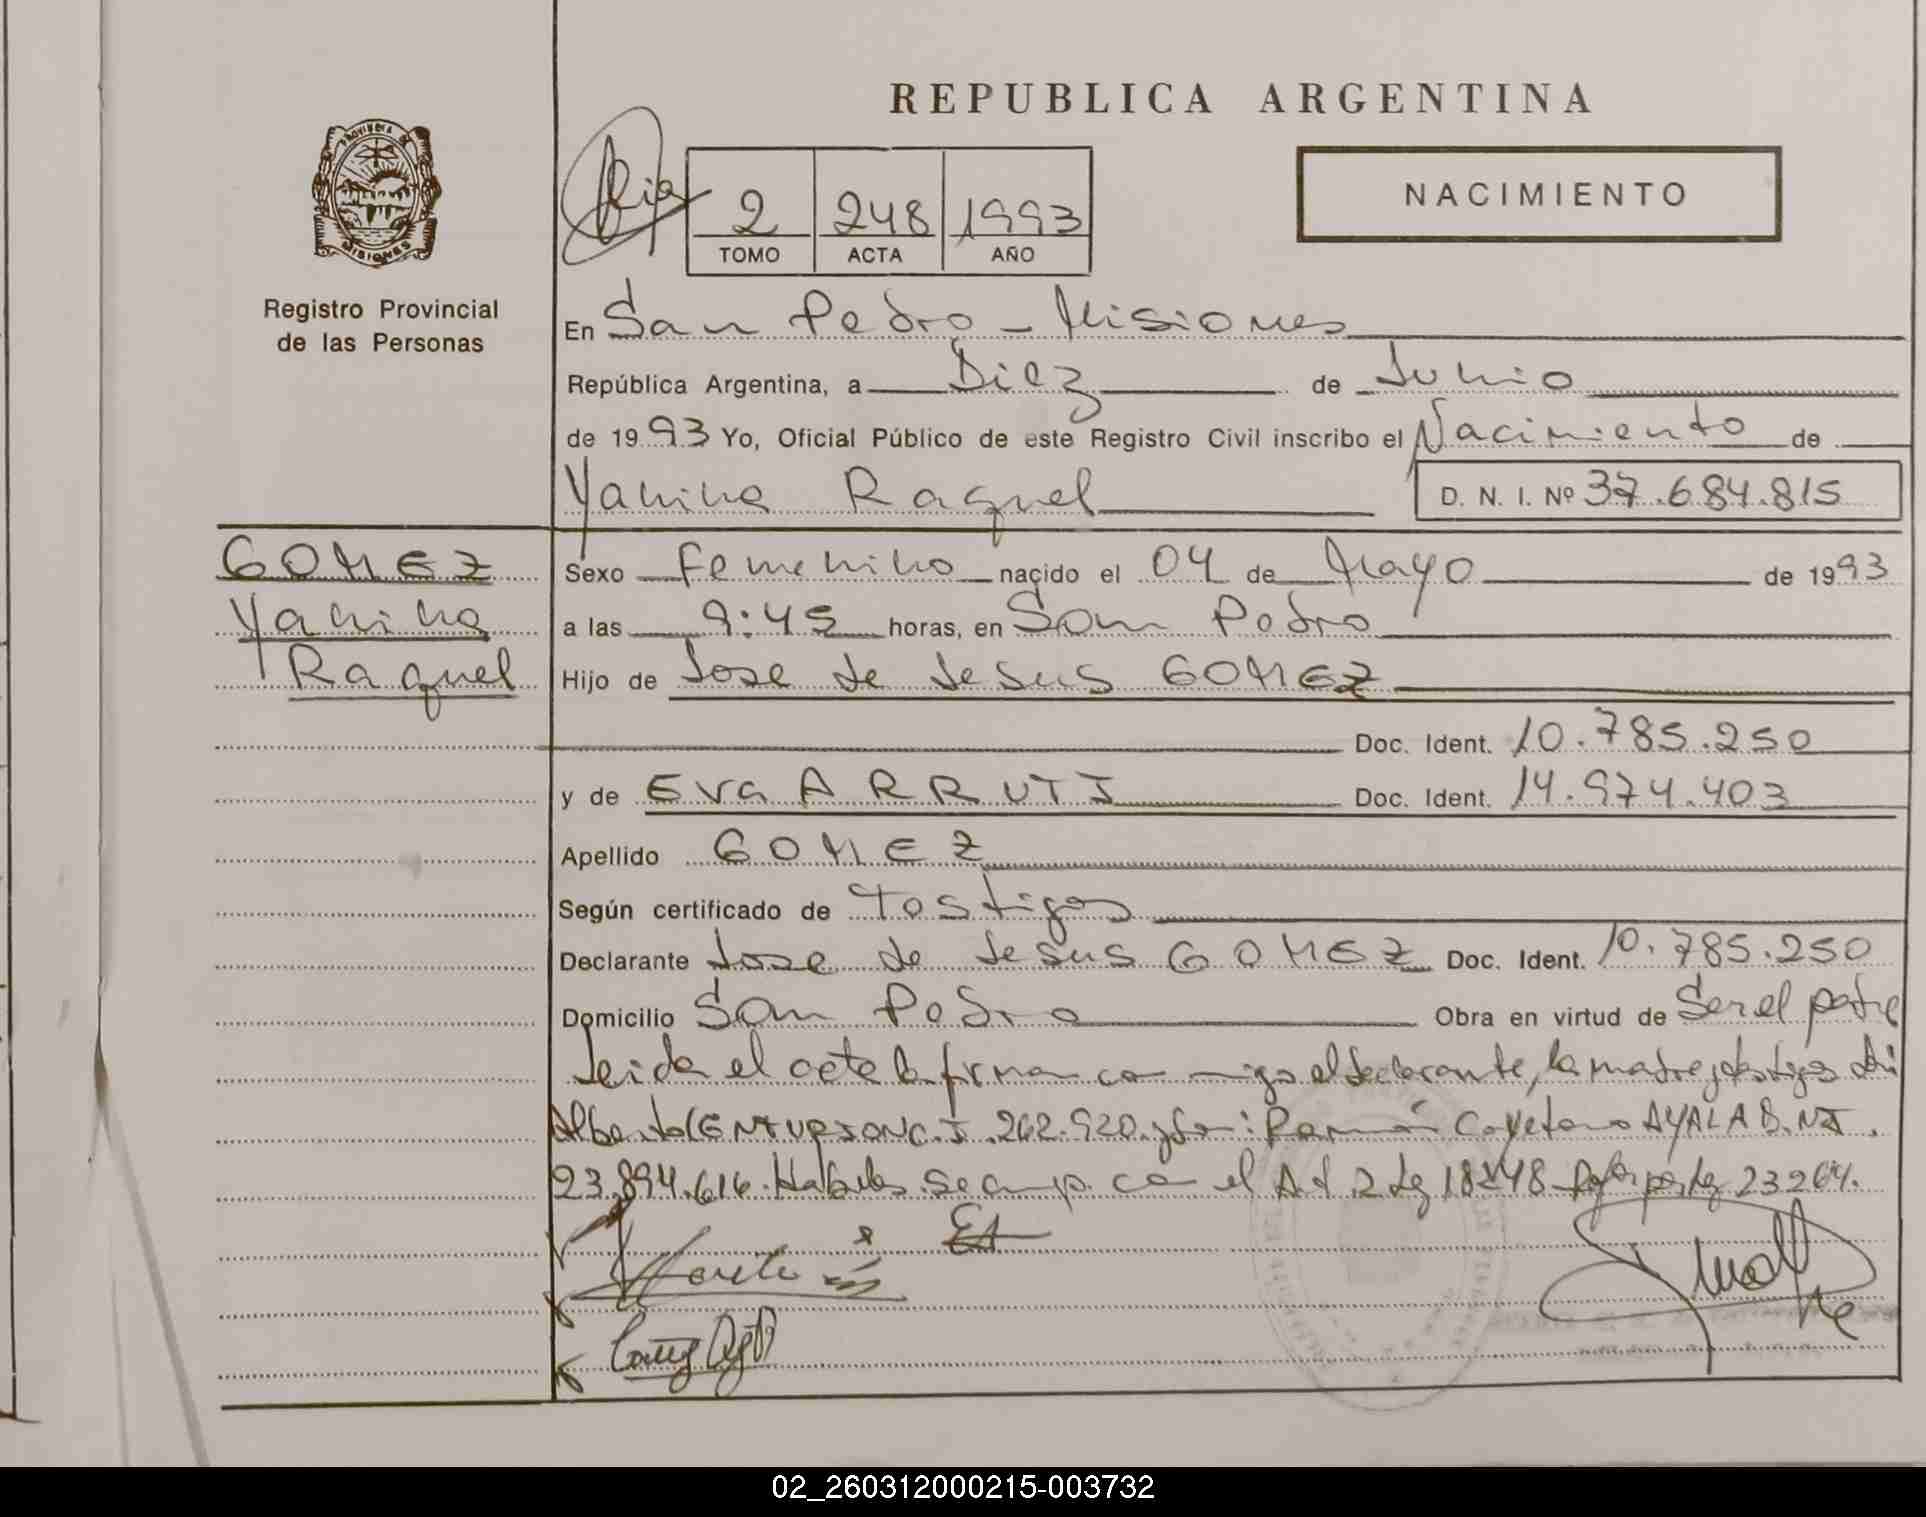 REPUBLICA ARGENTINA
PROVINCIA DE
MISIONES
Registro Provincial
de las Personas
2 248 1993
TOMO ACTA AÑO
NACIMIENTO
En San Pedro - Misiones
República Argentina, a Diez de Junio
de 1993 Yo, Oficial Público de este Registro Civil inscribo el Nacimiento de
Yanina Raquel D. N. I. Nº 37.684.815
GOMEZ
Yanina
Raquel
Sexo Femenino nacido el 04 de Mayo de 1993
a las 9:45 horas, en San Pedro
Hijo de Jose de Jesus GOMEZ
Doc. Ident. 10.785.250
y de Eva ARRUTI Doc. Ident. 14.974.403
Apellido GOMEZ
Según certificado de Testigos
Declarante Jose de Jesus GOMEZ Doc. Ident. 10.785.250
Domicilio San Pedro Obra en virtud de Ser el padre
Leida el acta la firman conmigo el declarante, la madre y testigos
Alberto C.I. 262.920 y Ramón Cayetano AYALA D.N.I.
23.894.616. Habiles. se cump. con el Art 2 Ley 18248 Ley 23264.
02_260312000215-003732